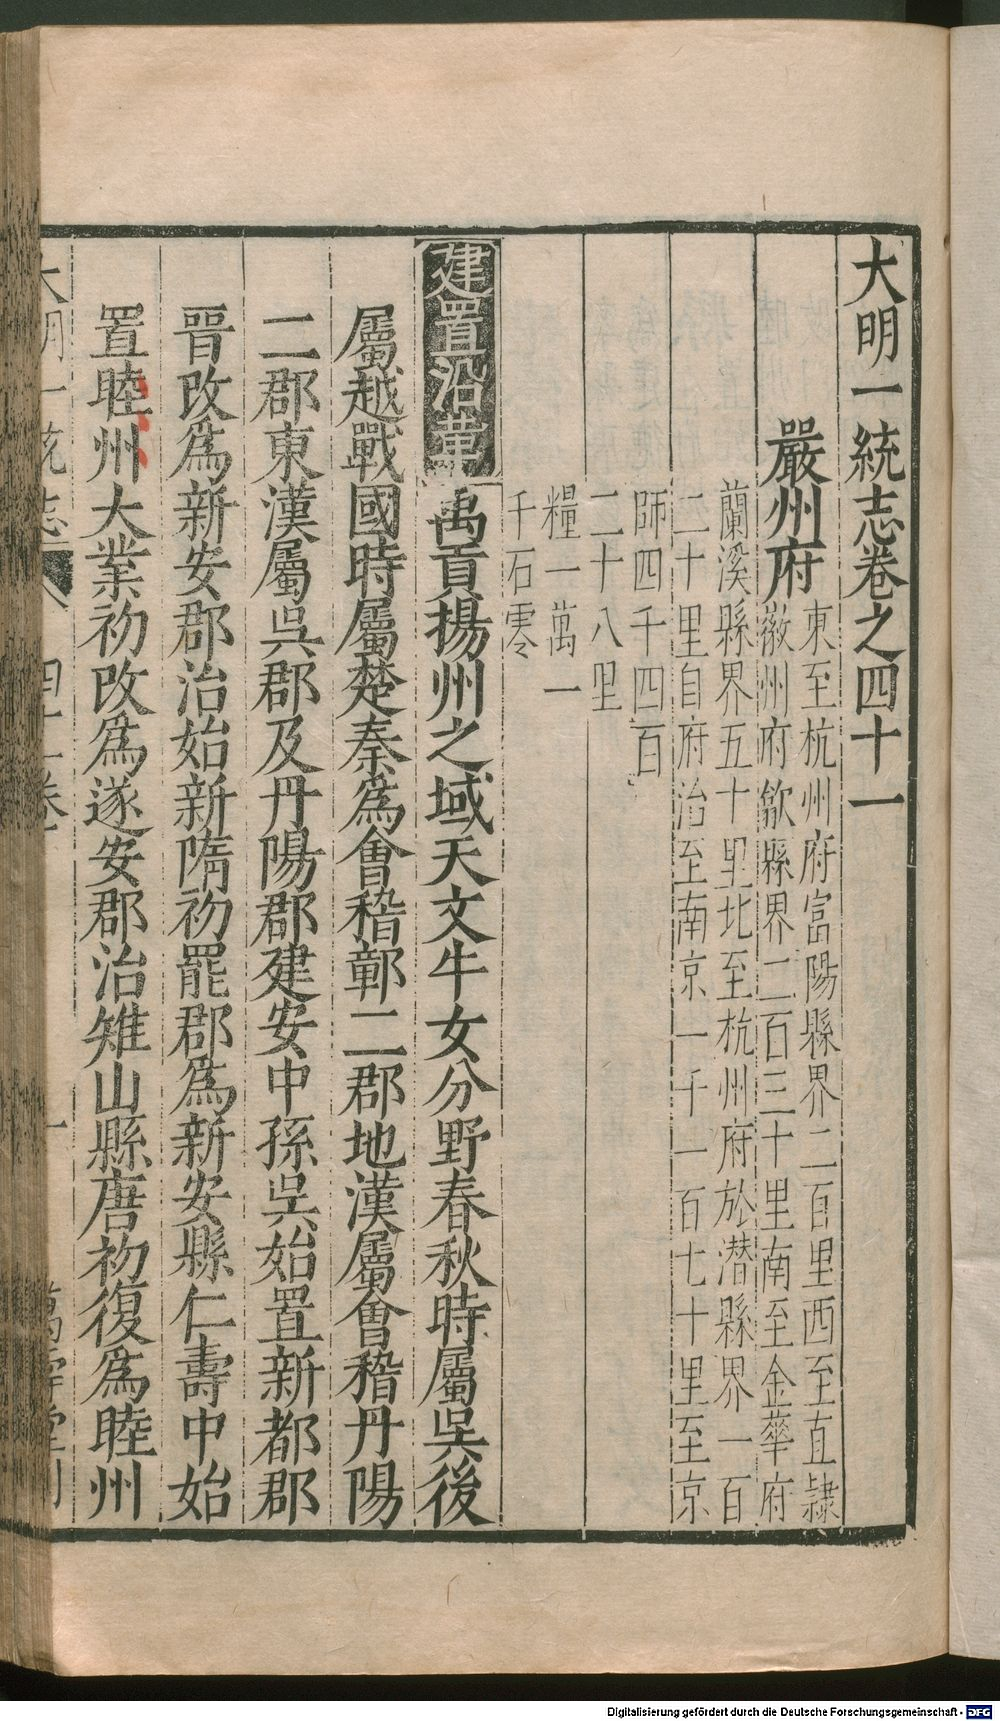 大明一統志卷之四十一
嚴州府
東至杭州府富陽縣界二百里西至直隸
徽州府歙縣界二百三十里南至金華府
蘭溪縣界五十里北至杭州府於潛縣界一百
二十里自府治至南京一千一百七十里至京
師四千四百
二十八里
糧一萬一
千石零
建置沿革
禹貢揚州之域天文牛女分野春秋時屬吳後
屬越戰國時屬楚秦爲會稽鄣二郡地漢屬會稽丹陽
二郡東漢屬吳郡及丹陽郡建安中孫吳始置新都郡
晉改爲新安郡治始新隋初罷郡爲新安縣仁壽中始
置睦州大業初改爲遂安郡治雉山縣唐初復爲睦州
大明一統志
四十一卷
一
萬壽堂刊
Digitalisierung gefördert durch die Deutsche Forschungsgemeinschaft - DFG